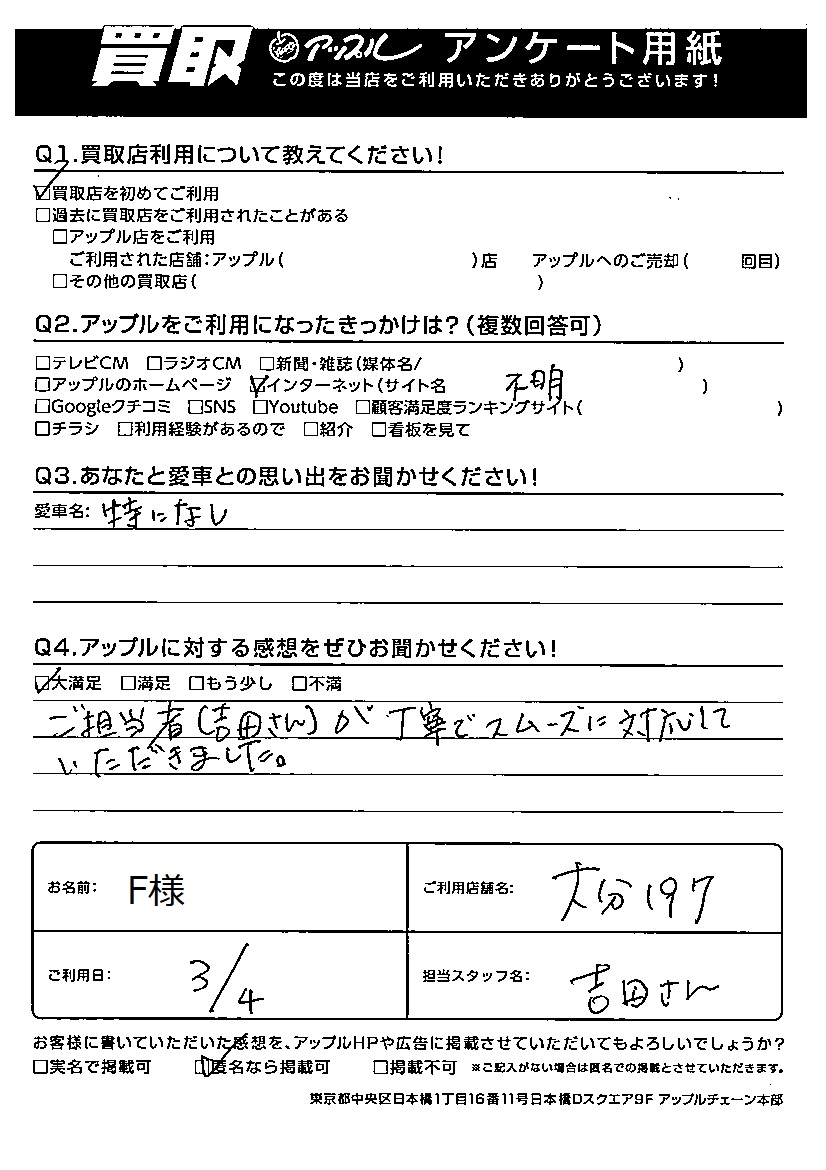 買取 アップル アンケート用紙
この度は当店をご利用いただきありがとうございます!
Q1.買取店利用について教えてください!
☑買取店を初めてご利用
□過去に買取店をご利用されたことがある
□アップル店をご利用
ご利用された店舗:アップル( )店 アップルへのご売却( 回目)
□その他の買取店( )
Q2.アップルをご利用になったきっかけは?(複数回答可)
□テレビCM □ラジオCM □新聞・雑誌(媒体名/ )
□アップルのホームページ ☑インターネット(サイト名 不明 )
□Googleクチコミ □SNS □Youtube □顧客満足度ランキングサイト( )
□チラシ □利用経験があるので □紹介 □看板を見て
Q3.あなたと愛車との思い出をお聞かせください!
愛車名: 特になし
Q4.アップルに対する感想をぜひお聞かせください!
☑大満足 □満足 □もう少し □不満
ご担当者(吉田さん)が丁寧でスムーズに対応して
いただきました。
お名前: F様 ご利用店舗名: 大分197
ご利用日: 3/4 担当スタッフ名: 吉田さん
お客様に書いていただいた感想を、アップルHPや広告に掲載させていただいてもよろしいでしょうか?
□実名で掲載可 ☑匿名なら掲載可 □掲載不可 ※ご記入がない場合は匿名での掲載とさせていただきます。
東京都中央区日本橋1丁目16番11号日本橋Dスクエア9F アップルチェーン本部